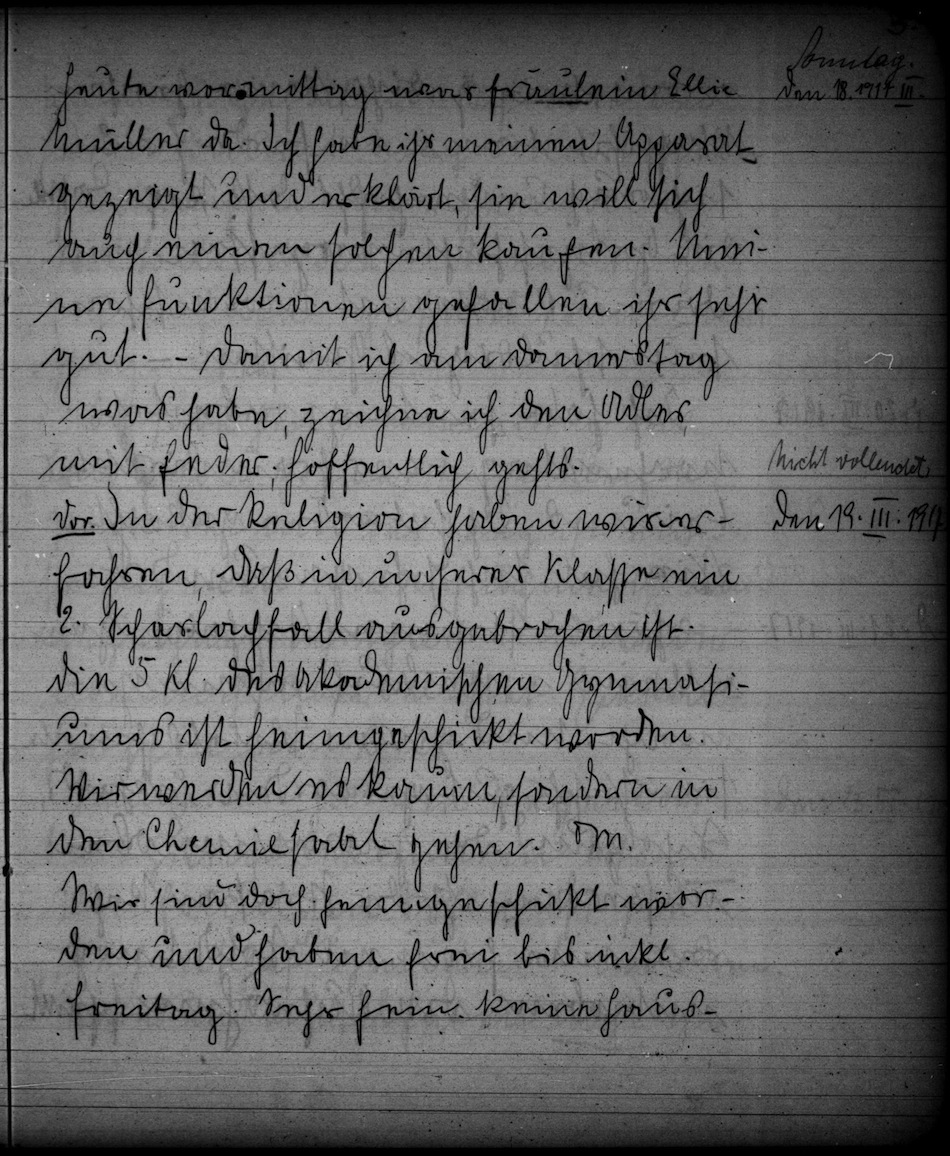 Sonntag.
Heute vormittag war Fräulein Ellie
den 18. 1917 III.
Müller da. Ich habe ihr meinen Apparat
gezeigt und erklärt, sie will sich
auch einen solchen kaufen. Mei-
ne Funktionen gefallen ihr sehr
gut. - Damit ich am Donnerstag
was habe, zeichne ich den Adler
mit Feder. Hoffentlich gehts.
Nicht vollendet
Vor. In der Religion haben wir er-
den 19. III. 1917
fahren, daß in unserer Klasse ein
2. Scharlachfall ausgebrochen ist.
Die 5 Kl. des Akademischen Gymnasi-
ums ist heimgeschickt worden.
Wir werden es kaum, sondern in
den Chemiesaal gehen. NM.
Wir sind doch heimgeschickt wor-
den und haben frei bis inkl.
Freitag. Sehr fein. Keine Haus-